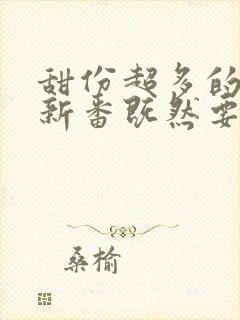 甜份超多的
新番既然要
桑榆